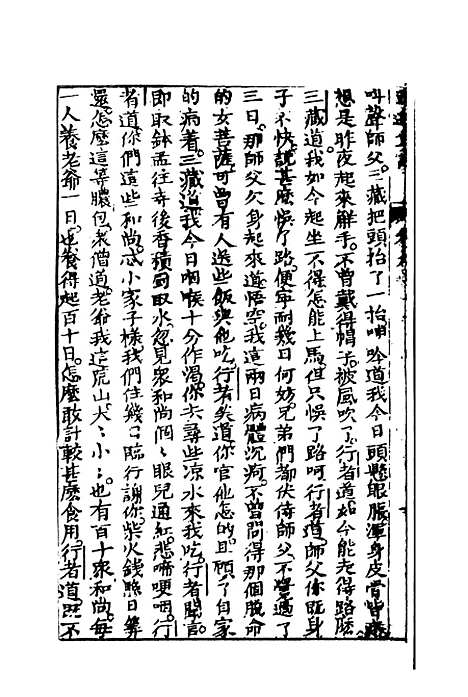 叫聲師父三藏把頭抬了一抬呻吟道我今日頭懸眼脹渾身皮骨皆疼
想是昨夜起來解手不曾戴得帽子被風吹了行者道如今能走得路麽
三藏道我如今起坐不得怎能上馬但只悞了路呵行者道師父你既身
子不快說甚麽悞了路便寧耐幾日何妨兄弟們都伏侍師父不覺過了
三日那師父欠身起來道悟空我這兩日病體沉疴不曾問得那個脫命
的女菩薩可曾有人送些飯與他吃行者笑道你官他怎的且頋了自家
的病着三藏道我今日咽喉十分作渴你去尋些凉水來我吃行者聞言
即取鉢盂往寺後香積厨取水忽見衆和尚個〻眼兒通紅悲啼哽咽行
者道你們這些和尚忒小家子樣我們住幾日臨行謝你柴火錢照日筭
還怎麽這等膿包衆僧道老爺我這荒山大〻小〻也有百十衆和尚每
一人養老爺一日也養得起百十日怎麽敢計較甚麽食用行者道既不